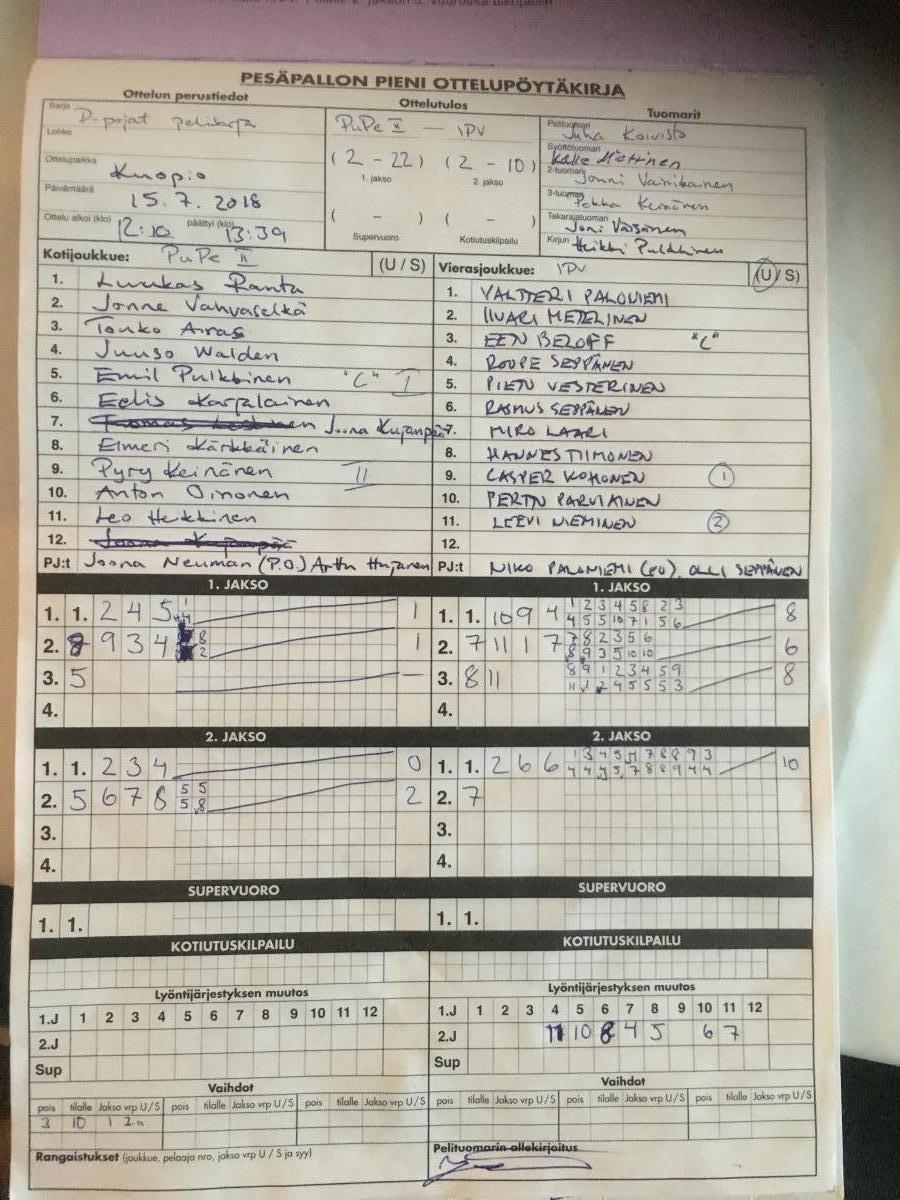 PESÄPALLON PIENI OTTELUPÖYTÄKIRJA
Ottelun perustiedot
Ottelutulos
Tuomarit
Sarja D-pojat pelisarja
Lohko
Ottelupaikka Kuopio
Päivämäärä 15.7.2018
Ottelu alkoi (klo) 12:10 päättyi (klo) 13:39
PuPe II - IPV
(2 - 22) (2 - 10)
1. jakso 2. jakso
( - ) ( - )
Supervuoro Kotiutuskilpailu
Pelituomari Juha Koivisto
Syöttötuomari Kalle Miettinen
2-tuomari Jouni Vainikainen
3-tuomari Pekka Keinänen
Takarajatuomari Joni Väisänen
Kirjuri Heikki Pulkkinen
Kotijoukkue: PuPe II (U / S)
1. Luukas Ranta
2. Jonne Vahvaselkä
3. Touko Airas
4. Juuso Walden
5. Emil Pulkkinen "C" I
6. Eelis Karjalainen
7. Joona Kujanpää
8. Elmeri Kärkkäinen
9. Pyry Keinänen II
10. Anton Oinonen
11. Leo Heikkinen
12. Joona Kujanpää
PJ:t Joona Neuman (P.O.) Arttu
Vierasjoukkue: IPV (U / S)
1. VALTTERI PALONIEMI
2. IIVARI METELINEN
3. EEN BELOFF "C"
4. ROOPE SEPPÄNEN
5. PIETU VESTERINEN
6. RASMUS SEPPÄNEN
7. MIRO LAARI
8. HANNES TIIMONEN
9. CASPER KOHONEN 1
10. PERTTU PARVIAINEN
11. LEEVI NIEMINEN 2
12.
PJ:t NIKO PALONIEMI (PO), OLLI SEPPÄNEN
1. JAKSO
1. 1. 2 4 5 1
2. 8 9 3 4 8 2 1
3. 5 —
4.
1. JAKSO
1. 1. 10 9 4 1 2 3 4 5 8 2 3 8
4 5 5 10 7 1 5 6
2. 7 11 1 7 7 8 2 3 5 6 6
8 9 3 5 10 10
3. 8 11 8 9 1 2 3 4 5 9 8
11 1 2 4 5 5 5 3
4.
2. JAKSO
1. 1. 2 3 4 0
2. 5 6 7 8 5 5 2
5 8
3.
4.
2. JAKSO
1. 1. 2 6 6 1 3 4 5 11 7 8 8 9 3 10
4 4 5 5 7 8 8 9 4 4
2. 7
3.
4.
SUPERVUORO
1. 1.
SUPERVUORO
1. 1.
KOTIUTUSKILPAILU
KOTIUTUSKILPAILU
Lyöntijärjestyksen muutos
1.J 1 2 3 4 5 6 7 8 9 10 11 12
2.J
Sup
Lyöntijärjestyksen muutos
1.J 1 2 3 4 5 6 7 8 9 10 11 12
2.J 11 10 8 4 5 6 7
Sup
Vaihdot
pois tilalle Jakso vrp U / S pois tilalle Jakso vrp U / S pois tilalle Jakso vrp U / S
3 10 1
Vaihdot
pois tilalle Jakso vrp U / S pois tilalle Jakso vrp U / S pois tilalle Jakso vrp U / S
Rangaistukset (joukkue, pelaaja nro, jakso vrp U / S ja syy)
Pelituomarin allekirjoitus